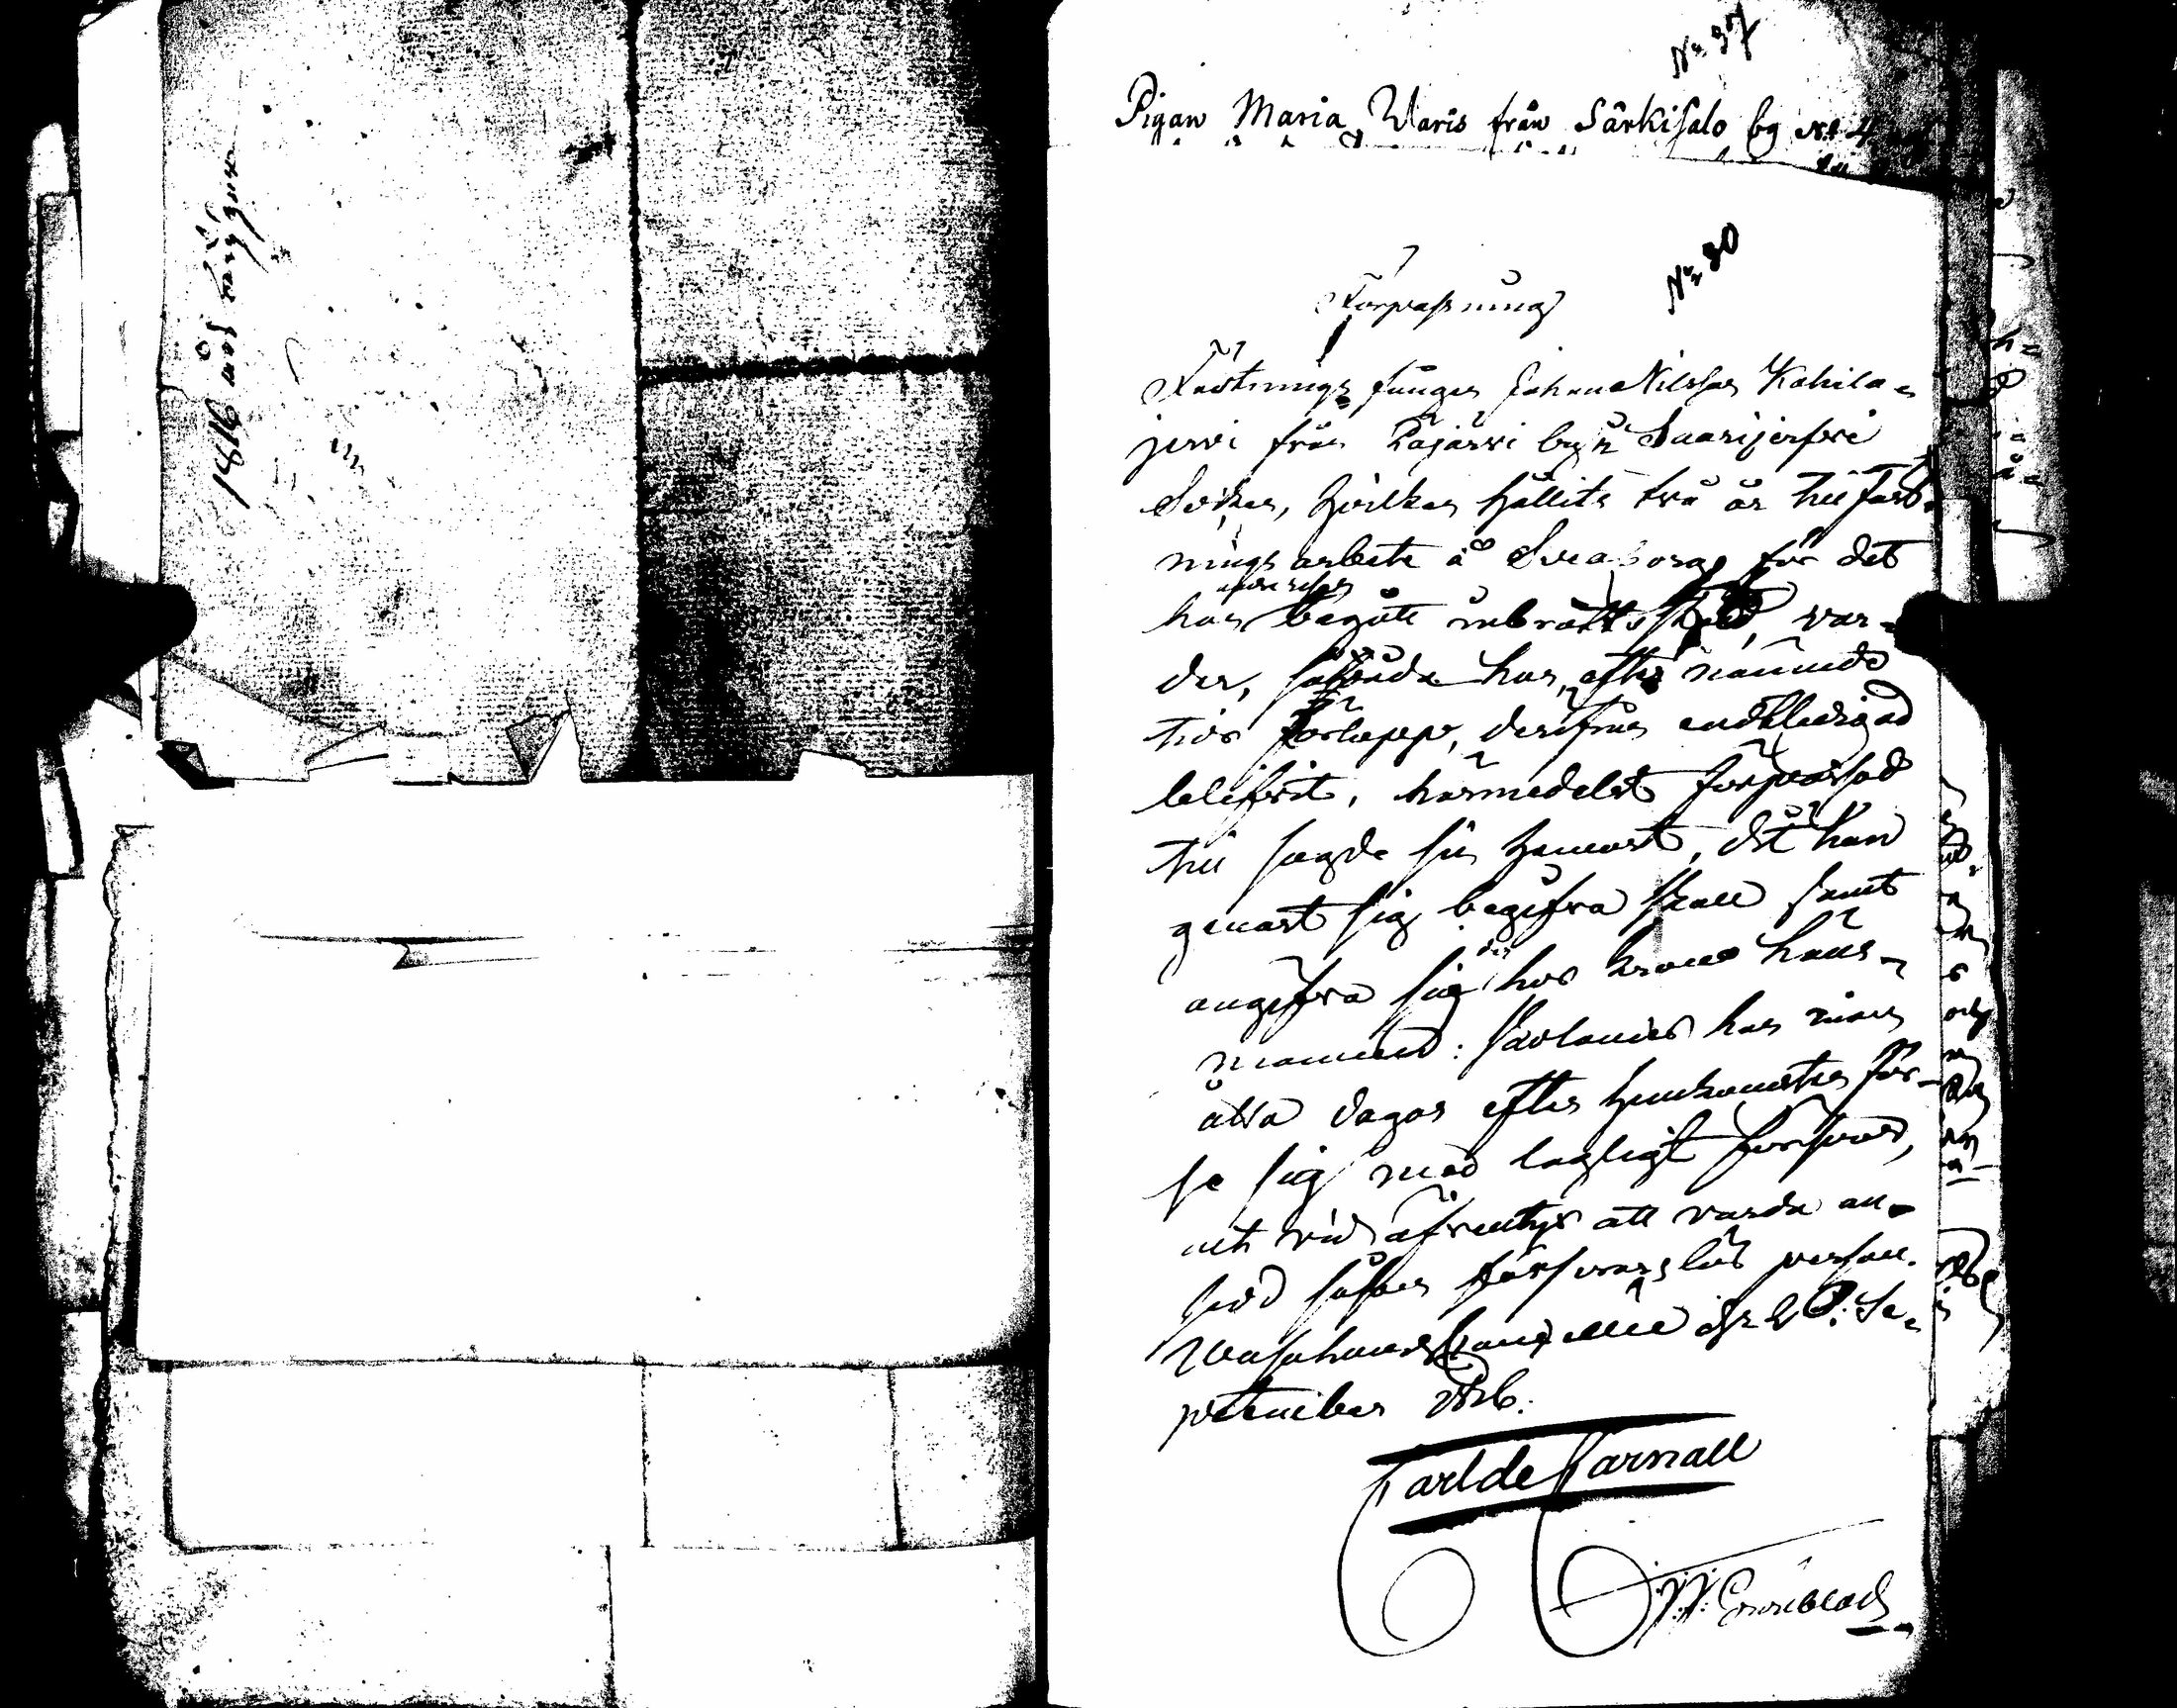 No 37
Pigan Maria Waris från Särkisalo by No 4
No 30
Förpassning
Fästnings fången Johan Nilsson Kahila-
jervi från Pajärvi by i Saarijerfvi
Socken, hvilken hållits två år till fäst-
nings arbete å Sveaborg för det
han begått inbrotts stöld, var-
der, sedan han, efter nämnde
tids förlopp, derifrån entledigad
blifvit, härmedelst förpassad
till sagde sin hemort, dit han
genast sig begifva skall samt
angifva sig hos Krono Läns-
mannen: skolandes han inom
åtta dagar efter hemkomsten för-
se sig med lagligt försvar,
vid äfventyr att varda an-
sedd såsom försvarslös person.
Wasa Landskansellie den 20. Se-
ptember
Carl de Carnall